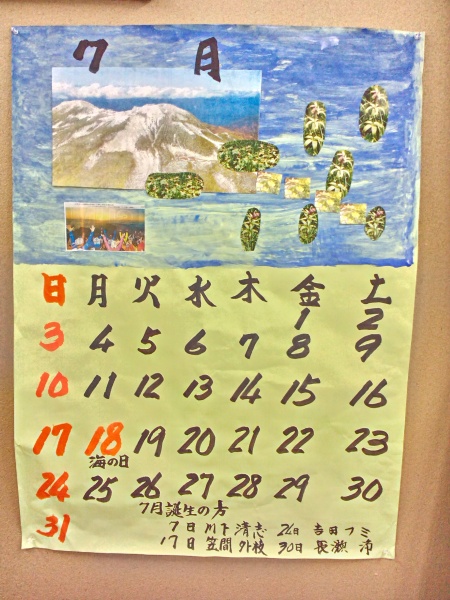 7月
日 月 火 水 木 金 土
1 2
3 4 5 6 7 8 9
10 11 12 13 14 15 16
17 18 19 20 21 22 23
海の日
24 25 26 27 28 29 30
7月誕生の方
31
7日 川下 清志 24日 吉田 フミ
17日 笠間 外枝 30日 長瀬